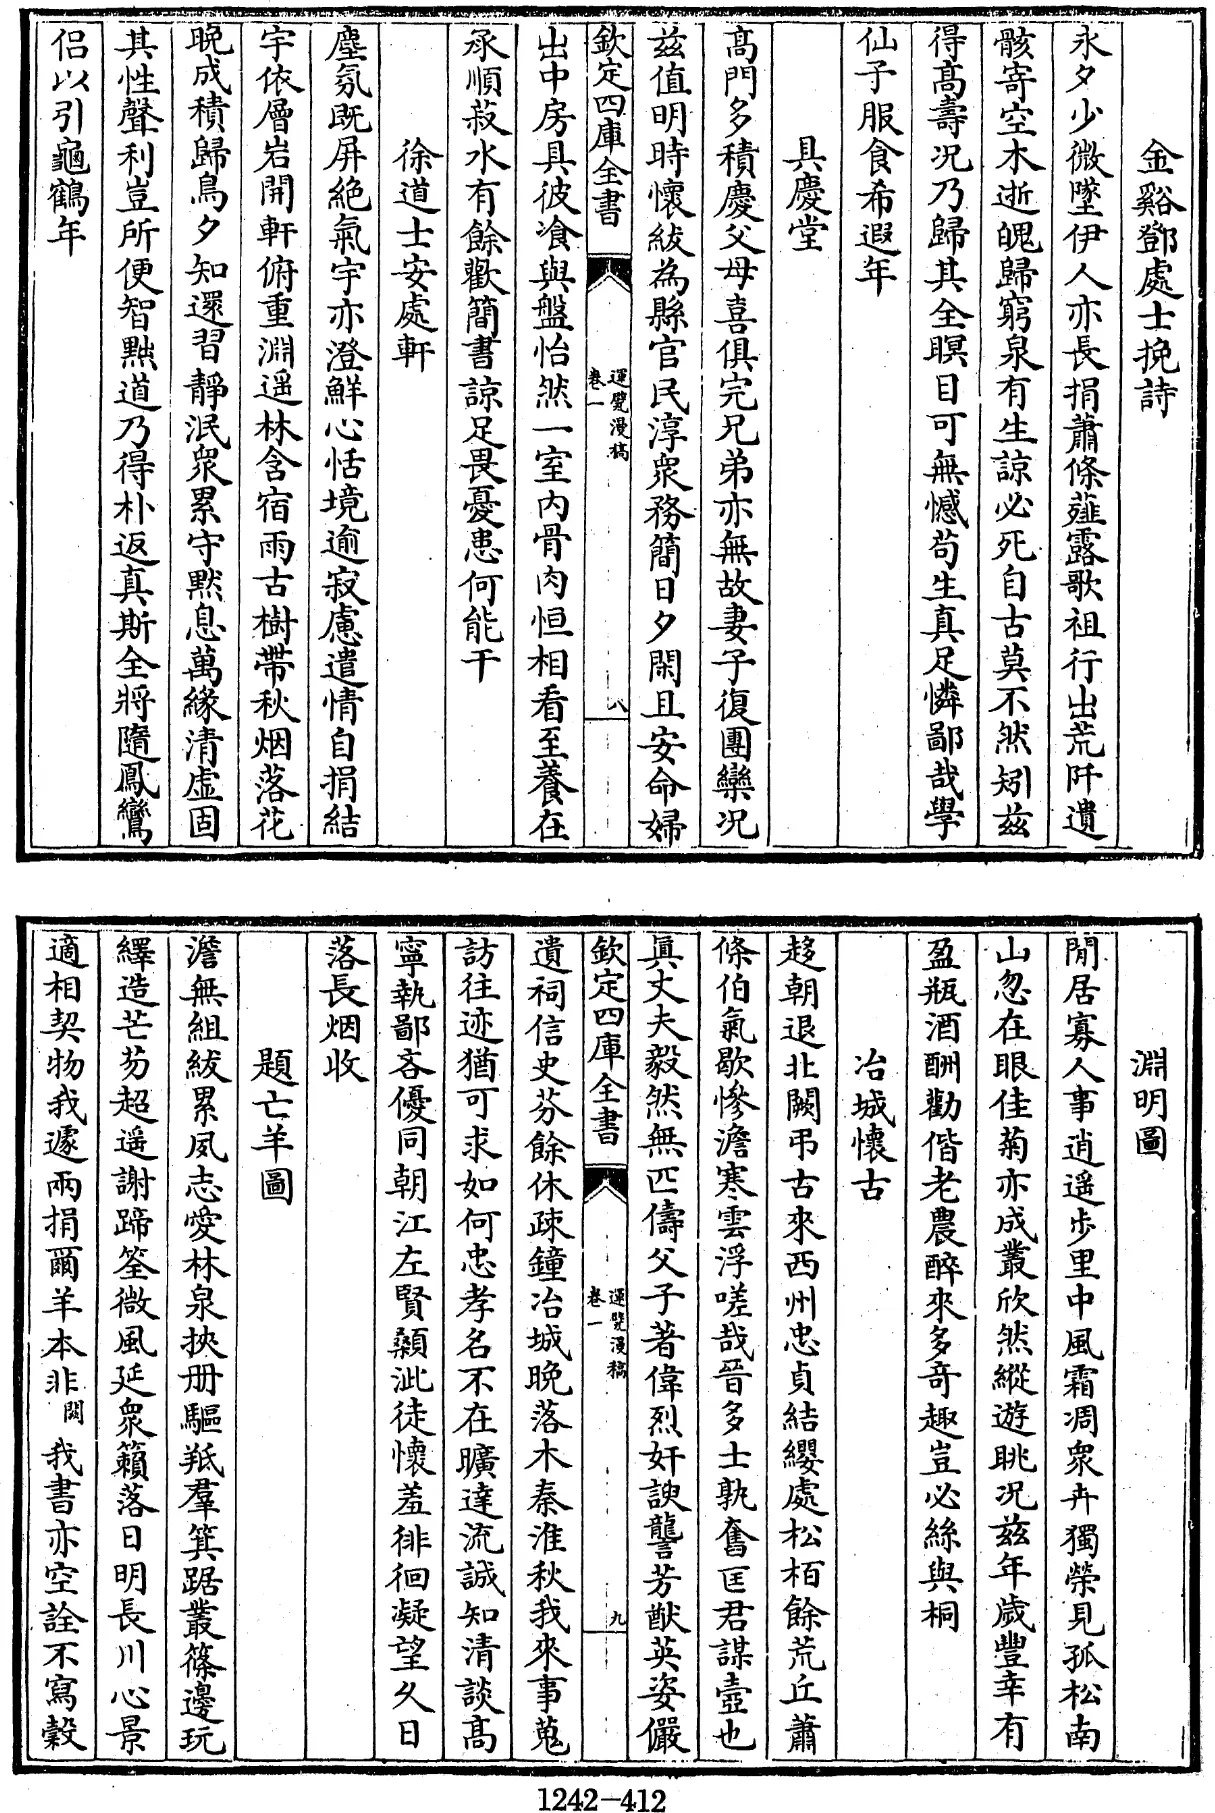 金谿鄧處士挽詩
永夕少微墜伊人亦長捐蕭條薤露歌祖行出荒阡遺
骸寄空木逝魄歸窮泉有生諒必死自古莫不然矧兹
得高壽况乃歸其全瞑目可無憾苟生真足憐鄙哉學
仙子服食希遐年
具慶堂
高門多積慶父母喜俱完兄弟亦無故妻子復團欒况
兹值明時懷紱為縣官民淳衆務簡日夕閑且安命婦
欽定四庫全書
運甓漫稿
卷一
八
出中房具彼飡與盤怡然一室内骨肉恒相看至養在
承順菽水有餘歡簡書諒足畏憂患何能干
徐道士安處軒
塵氛既屏絶氣宇亦澄鮮心恬境逾寂慮遣情自捐結
宇依層岩開軒俯重淵遥林含宿雨古樹帶秋烟落花
晚成積歸鳥夕知還習靜泯衆累守黙息萬緣清虚固
其性聲利豈所便智黜道乃得朴返真斯全將隨鳳鸞
侣以引龜鶴年
淵明圖
閒居寡人事逍遥步里中風霜凋衆卉獨榮見孤松南
山忽在眼佳菊亦成叢欣然縱遊眺况兹年歲豐幸有
盈瓶酒酬勸偕老農醉來多奇趣豈必絲與桐
冶城懷古
趍朝退北闕弔古來西州忠貞結纓處松栢餘荒丘蕭
條伯氣歇慘澹寒雲浮嗟哉晉多士孰奮匡君謀壼也
真丈夫毅然無匹儔父子著偉烈奸諛讋芳猷英姿儼
欽定四庫全書
運甓漫稿
卷一
九
遺祠信史芬餘休疎鐘冶城晚落木秦淮秋我來事蒐
訪往迹猶可求如何忠孝名不在曠達流誠知清談髙
寧執鄙吝優同朝江左賢顙泚徒懷羞徘徊凝望久日
落長烟收
題亡羊圖
澹無組紱累夙志愛林泉挾册驅羝羣箕踞叢篠邊玩
繹造芒芴超遥謝蹄筌微風延衆籟落日明長川心景
適相契物我遽兩捐爾羊本非闕我書亦空詮不寫榖
1242-412